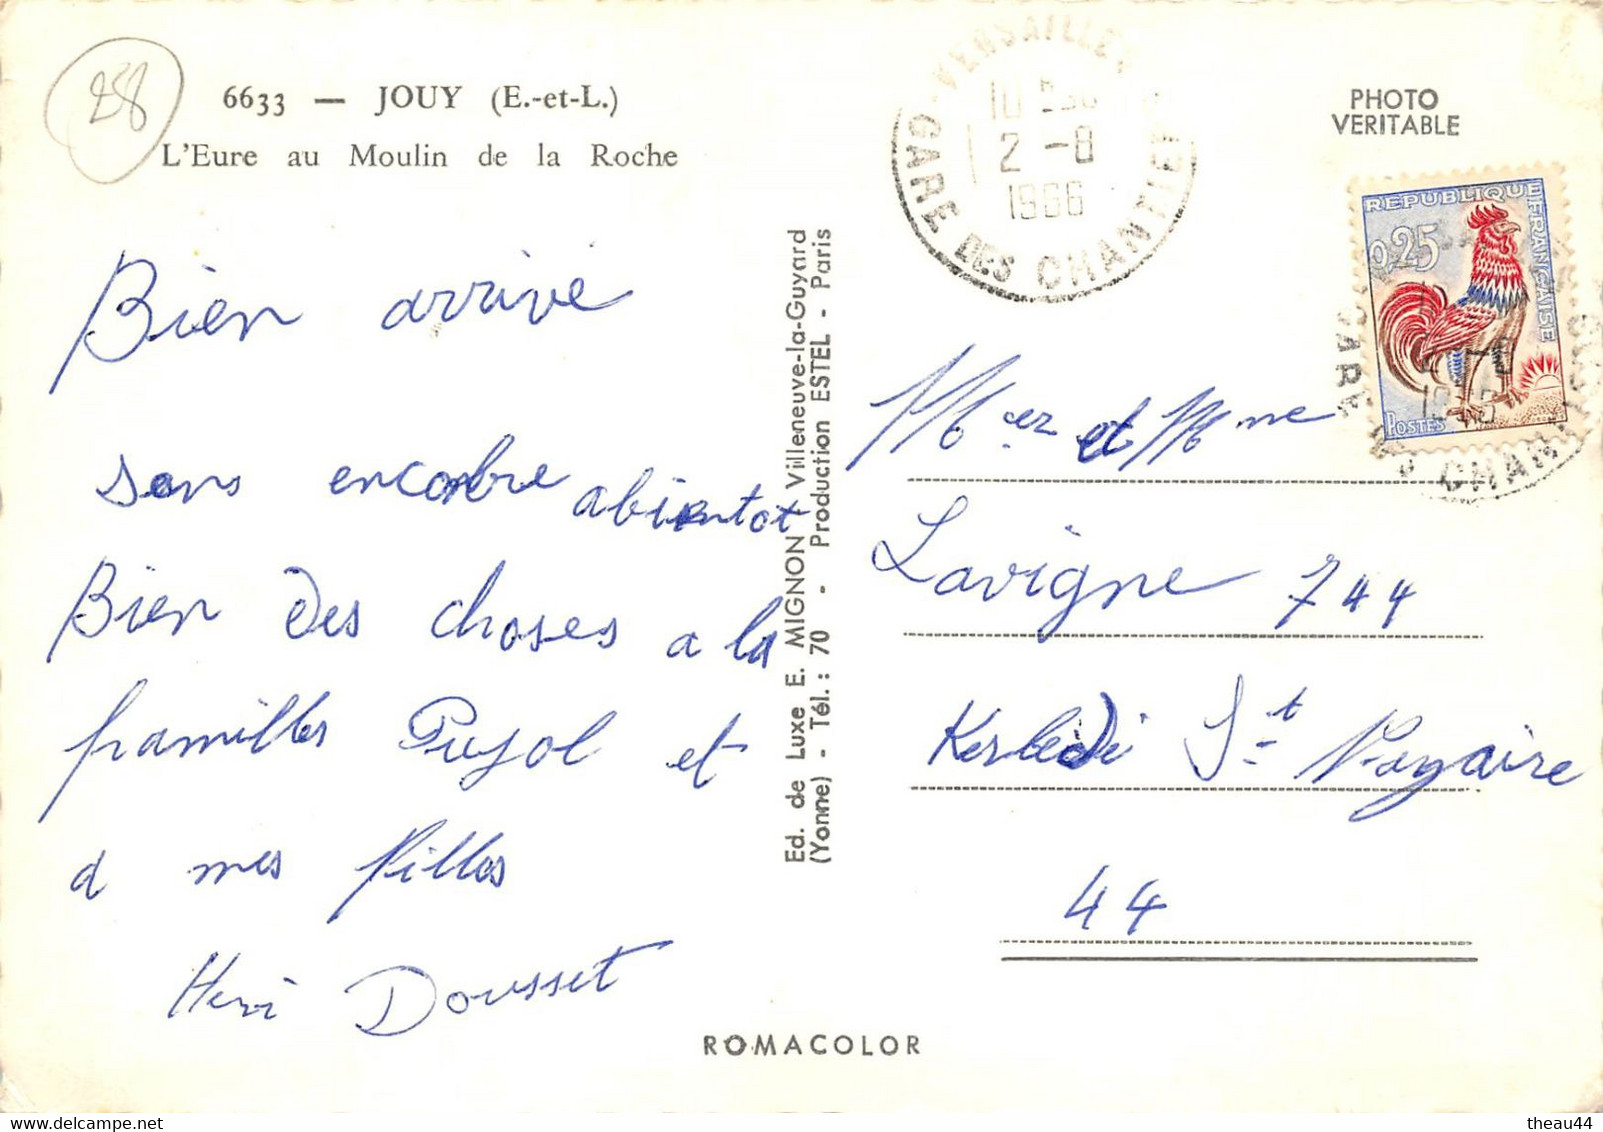 28
6633 — JOUY (E.-et-L.)
L'Eure au Moulin de la Roche
Bien arrivé
sans encombre abientot
Bien des choses a la
familles Pujol et
a mes filles
Henri Dousset
Ed. de Luxe E. MIGNON Villeneuve-la-Guyard
(Yonne) - Tél. : 70 - Production ESTEL - Paris
VERSAILLES
2 -8
1966
GARE DES CHANTIERS
PHOTO
VERITABLE
REPUBLIQUE FRANÇAISE
0,25
POSTES
GARE
CHANT
Mer et Mme
Lavigne 744
Kerledi St Nazaire
44
ROMACOLOR
theau44